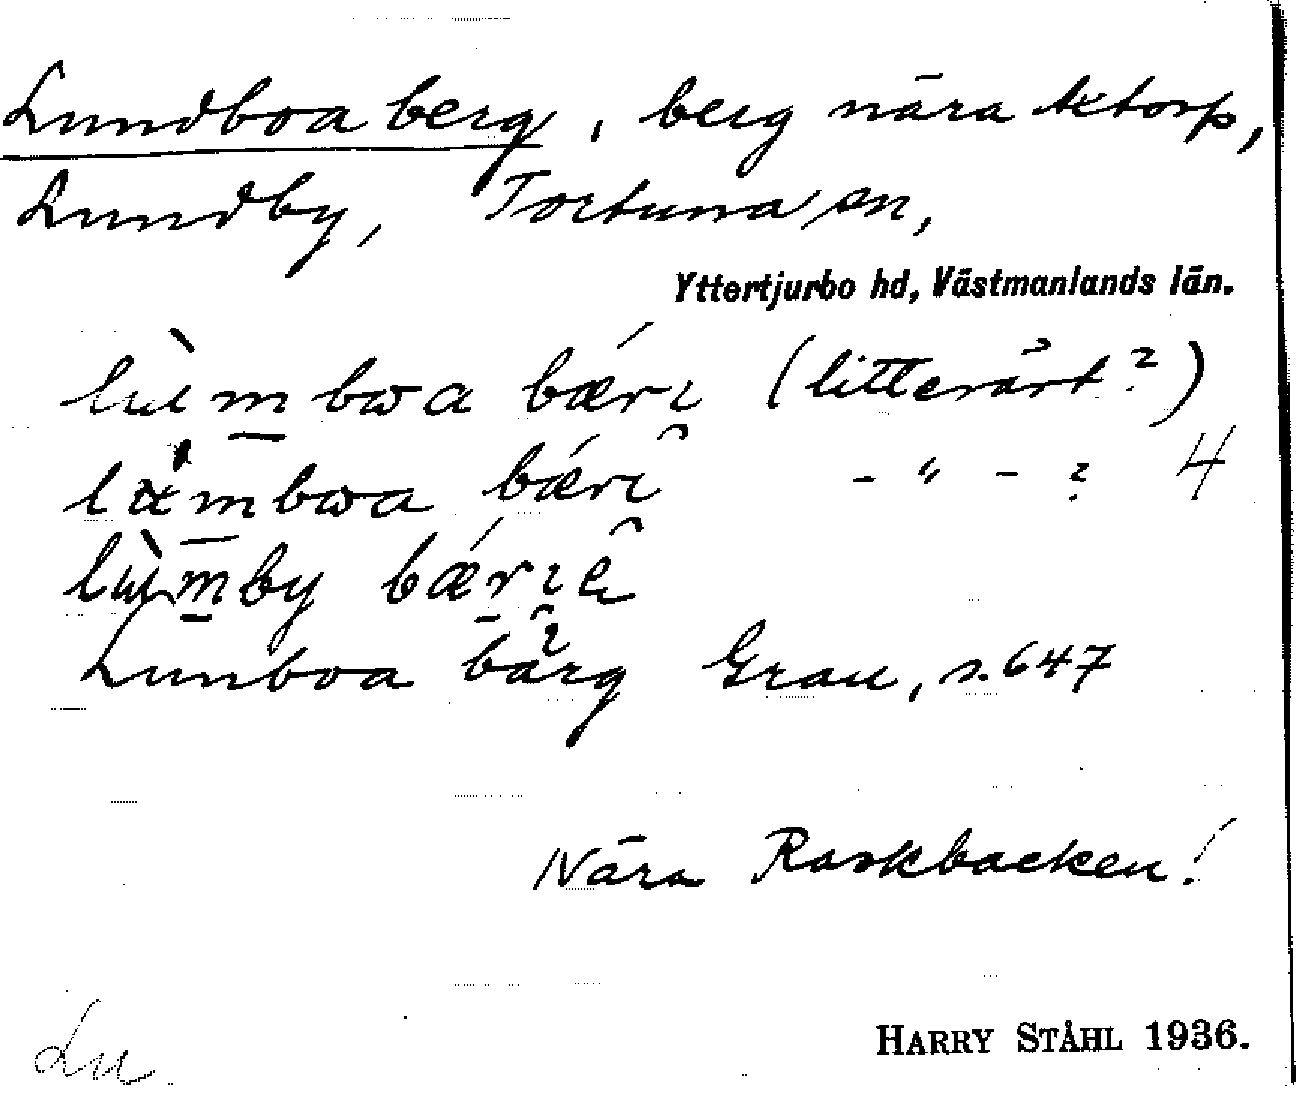 Lundboa berg, berg nära Aktorp,
Lundby, Tortuna sn,
Yttertjurbo hd, Västmanlands län.
lùmbwa bǽri (litterärt?)
bǽri - " - ? 4
lùmby bǽri
Lunboa bärg Grau, s. 647
Nära Raskbacken!
Lu
HARRY STÅHL 1936.